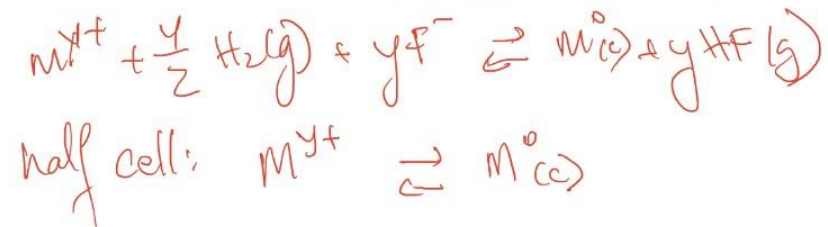 M^y+ + y/2 H₂(g) + yF⁻ ⇄ M°(c) + yHF(g)
half cell: M^y+ ⇄ M°(c)